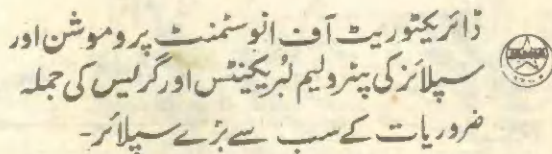 ڈائریکٹوریٹ آف انوسٹمنٹ پروموشن اور
سپلائز کی پیٹرولیم لُبریکینٹس اور گریس کی جملہ
ضروریات کے سب سے بڑے سپلائر-